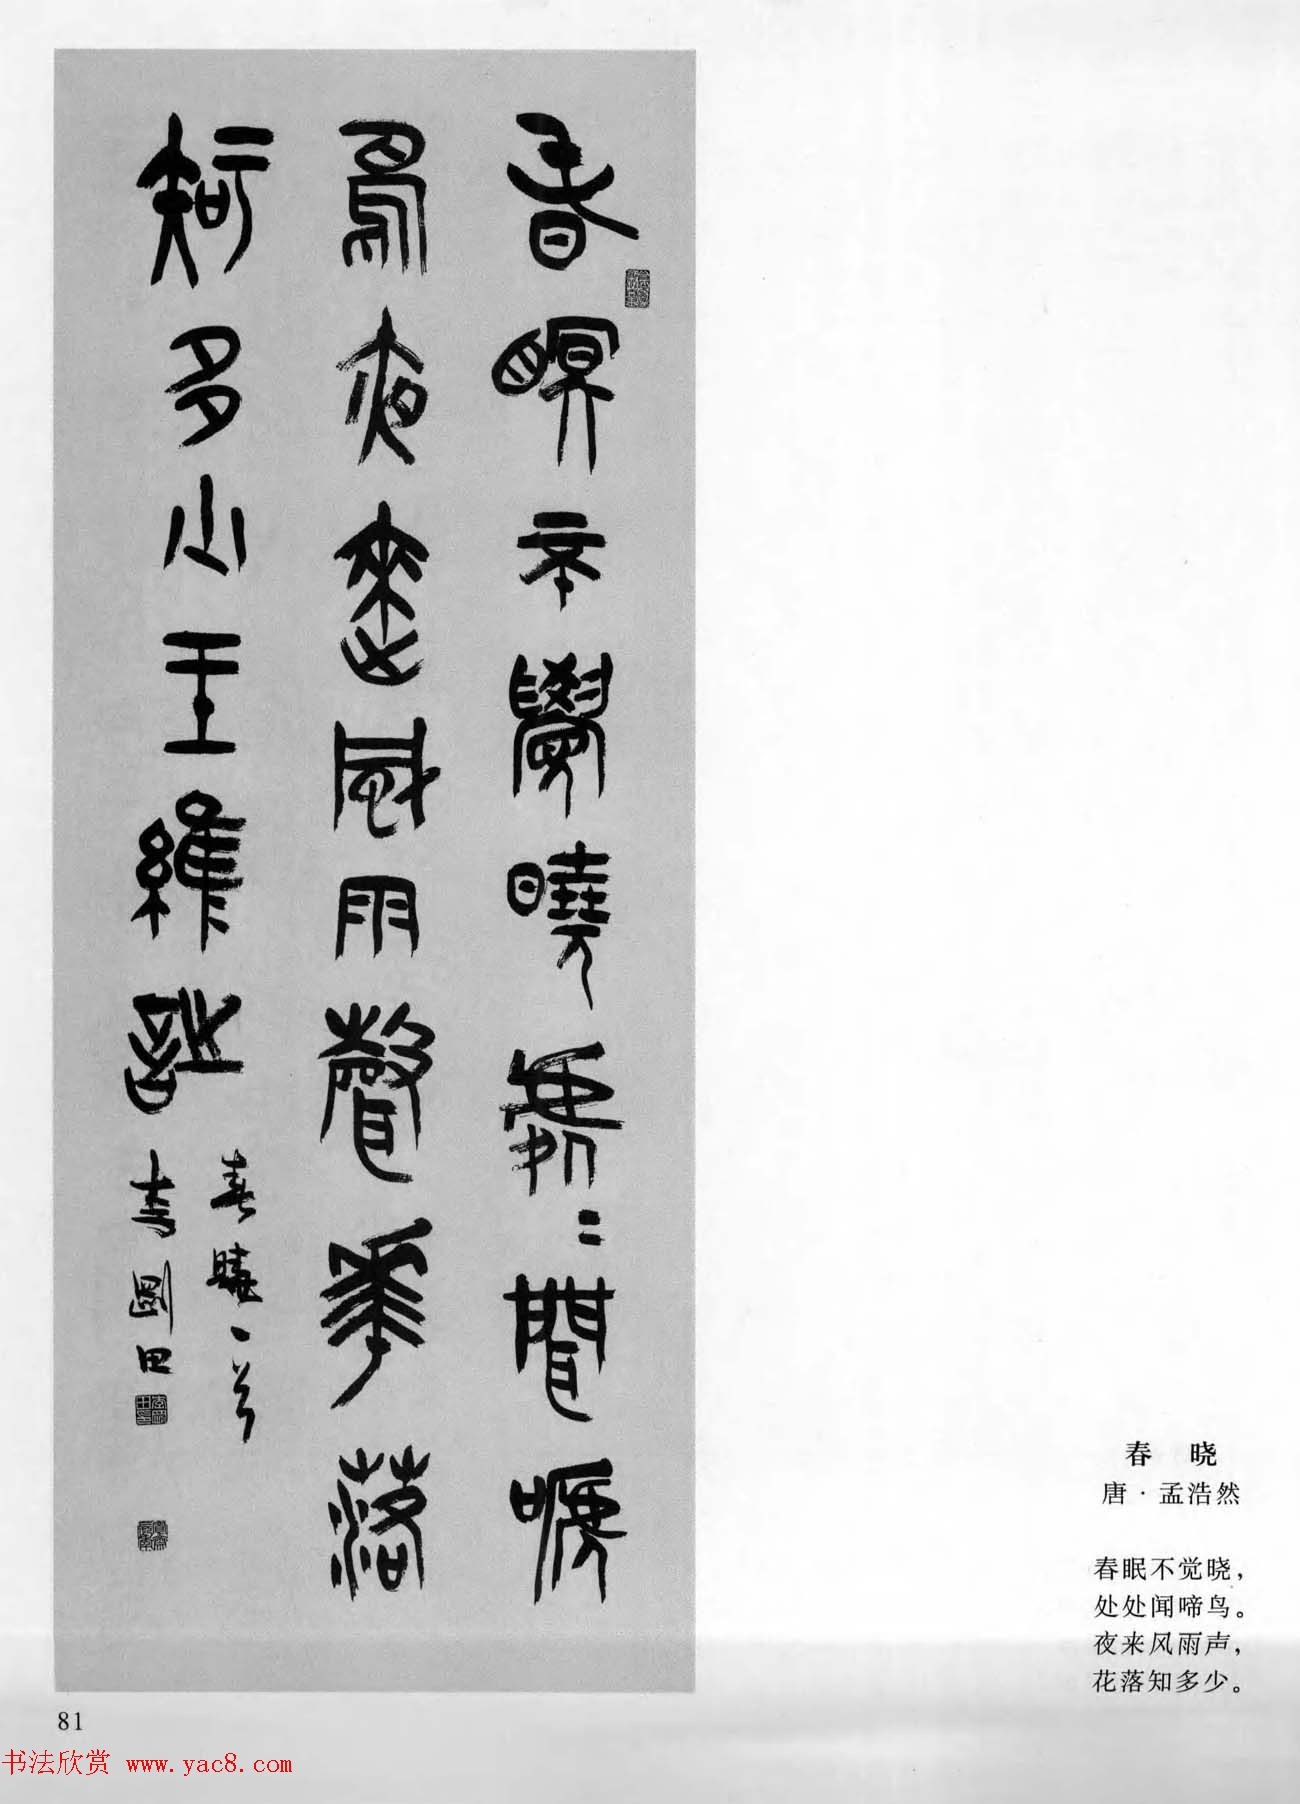 春瞑不覺曉處=聞嗁
鳥夜來風雨聲華落
知多少王維詩
春曉一首
李剛田
春 晓
唐·孟浩然
春眠不觉晓，
处处闻啼鸟。
夜来风雨声，
花落知多少。
81
书法欣赏 www.yac8.com